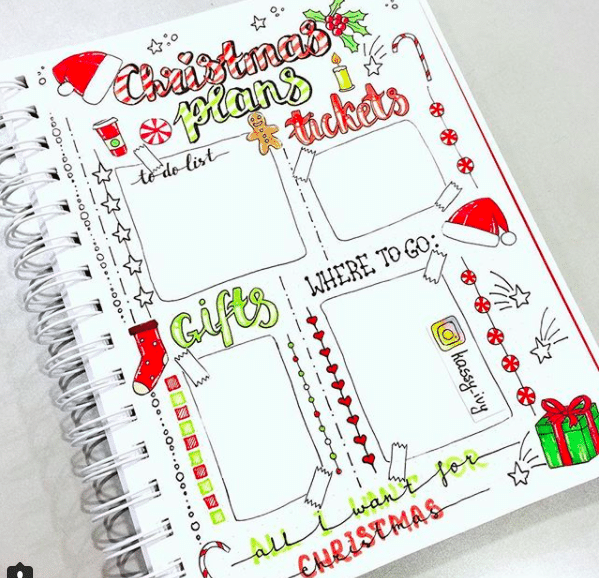 Christmas
plans
tickets
to do list
WHERE TO GO:
Gifts
kassy_ivy
ALL I want FOR
CHRISTMAS